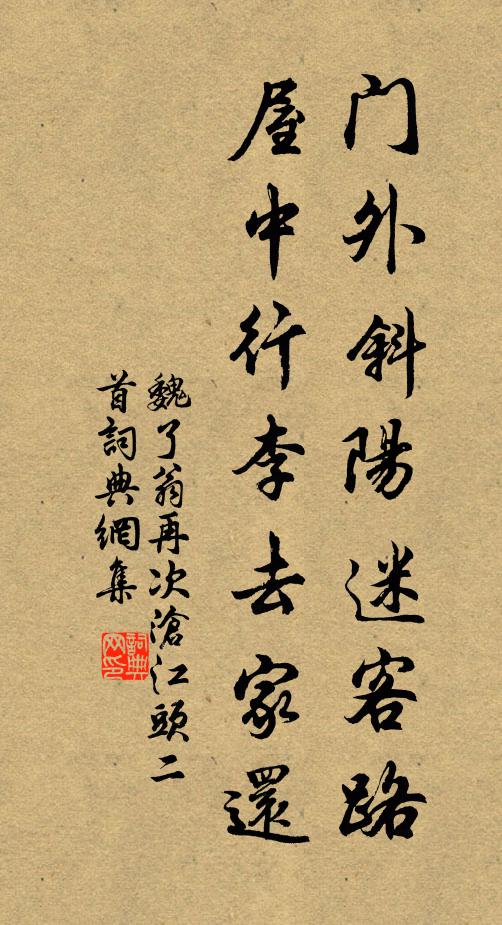 门外斜陽迷客路
屋中行李去家還
魏了翁再次滄江頭二
首詞典網集
詞典网印